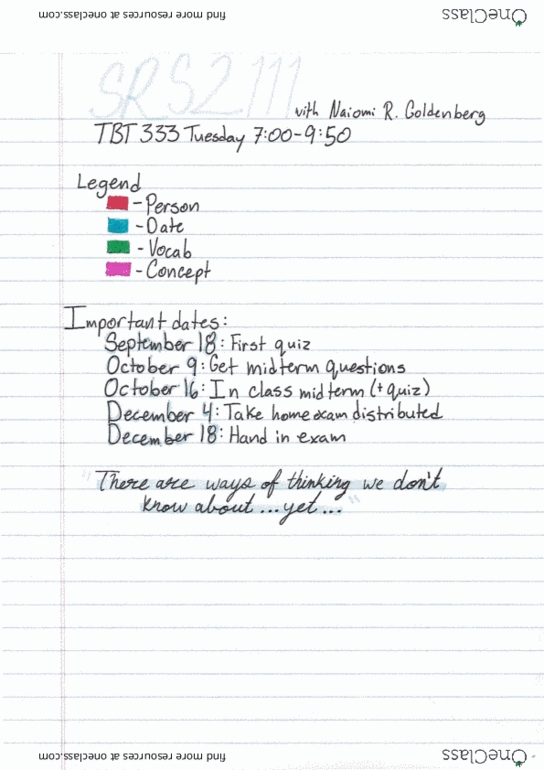 OneClass
find more resources at oneclass.com
SRS2111
with Naiomi R. Goldenberg
TBT 333 Tuesday 7:00-9:50
Legend
- Person
- Date
- Vocab
- Concept
Important dates:
September 18: First quiz
October 9: Get midterm questions
October 16: In class midterm (+ quiz)
December 4: Take home exam distributed
December 18: Hand in exam
"There are ways of thinking we don't
know about...yet..."
OneClass
find more resources at oneclass.com